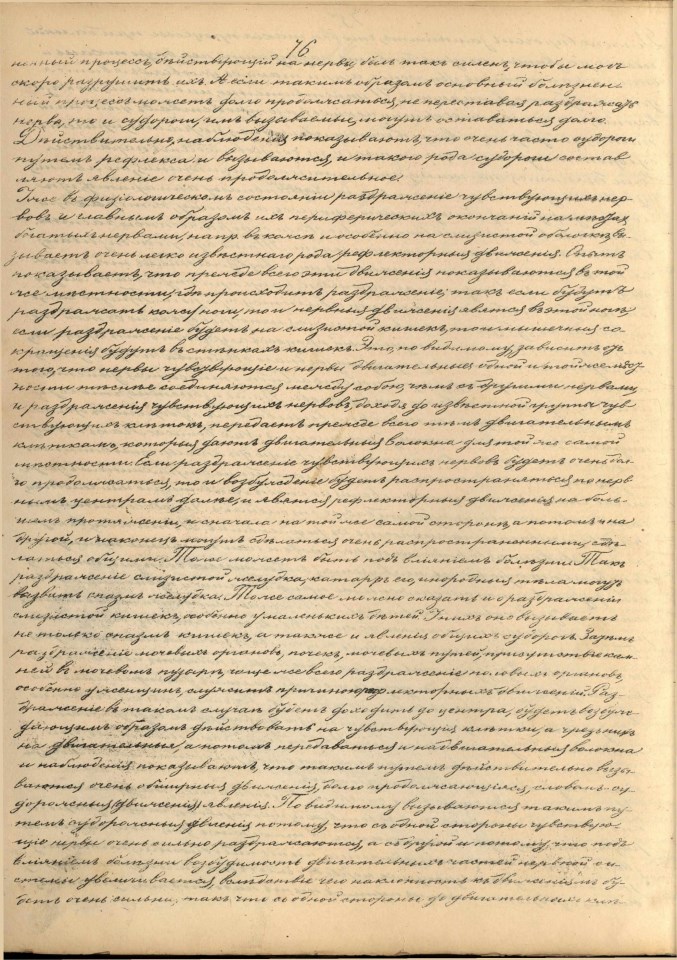 76
ненный процессъ, дѣйствующій на нервы, былъ такъ силенъ, чтобы могъ
скоро разрушить ихъ. А если такимъ образомъ основный болѣзнен-
ный процессъ можетъ долго продолжаться, не переставая раздражать
нервы, то и судороги, имъ вызываемыя, могутъ оставаться долго.
Дѣйствительно, наблюденія показываютъ, что очень часто судороги
путемъ рефлекса и вызываются, и такого рода судороги состав
ляютъ явленіе очень продолжительное.
въ физіологическомъ состояніи раздраженіе чувствующихъ нер
вовъ и главнымъ образомъ ихъ периферическихъ окончаній на мѣстахъ
богатыхъ нервами, напр. въ кожѣ и особенно на слизистой оболочкѣ, вы
зываетъ очень легко извѣстнаго рода рефлекторныя движенія. Опытъ
показываетъ, что прежде всего эти движенія показываются въ той
же мѣстности, гдѣ происходитъ раздраженіе; такъ если будутъ
раздражать кожу ноги, то и первыя движенія явятся въ этой ногѣ,
если раздраженіе будетъ на слизистой кишекъ, то мышечныя со
кращенія будутъ въ стѣнкахъ кишекъ. Это, по видимому, зависитъ отъ
того, что нервы чувствующіе и нервы двигательные одной и той же мѣст
ности тѣснѣе соединяются между собою, чѣмъ съ другими нервами,
и раздраженія чувствующихъ нервовъ, доходя до извѣстной группы чув
ствующихъ клѣтокъ, передаетъ прежде всего тѣмъ двигательнымъ
клѣткамъ, которыя даютъ двигательныя волокна для той же самой
мѣстности. Если раздраженіе чувствующихъ нервовъ будетъ очень дол-
го продолжаться, то и возбужденіе будетъ распространяться по нерв
нымъ центрамъ далѣе, и явятся рефлекторныя движенія на боль-
шемъ протяженіи, и сначала на той же самой сторонѣ, а потомъ и на
другой, и наконецъ могутъ сдѣлаться очень распространенными, сдѣ-
латься общими. Тоже можетъ быть подъ вліяніемъ болѣзни. Такъ
раздраженіе слизистой желудка, катарръ его, инородныя тѣла могутъ
вызвать спазмъ желудка. Тоже самое можно сказать и о раздраженіи
слизистой кишекъ, особенно у маленькихъ дѣтей. У нихъ оно вызываетъ
не только спазмъ кишекъ, а также и явленія общихъ судорогъ. Затѣмъ
раздраженіе мочевыхъ органовъ, почекъ, мочевыхъ путей, присутствіе кам-
ней въ мочевомъ пузырѣ, чаще же всего раздраженіе половыхъ органовъ,
особенно у женщинъ, служитъ причиною рефлекторныхъ движеній. Раз-
драженіе въ такомъ случаѣ будетъ доходить до центра, будетъ возбуж-
дающимъ образомъ дѣйствовать на чувствующія клѣтки, а чрезъ нихъ
на двигательныя, а потомъ передаваться и на двигательныя волокна
и наблюденія показываютъ, что такимъ путемъ дѣйствительно вызы-
ваются очень обширныя движенія, долго продолжающіяся, словомъ су-
дорожныя (движенія) явленія. По видимому вызываются такимъ пу-
темъ судорожныя явленія потому, что съ одной стороны чувствую-
щіе нервы очень сильно раздражаются, а съ другой и потому, что подъ
вліяніемъ болѣзни возбудимость двигательныхъ частей нервной си-
стемы увеличивается, вслѣдствіе чего наклонность къ движеніямъ бу-
детъ очень сильна; такъ что съ одной стороны до двигательныхъ клѣ-